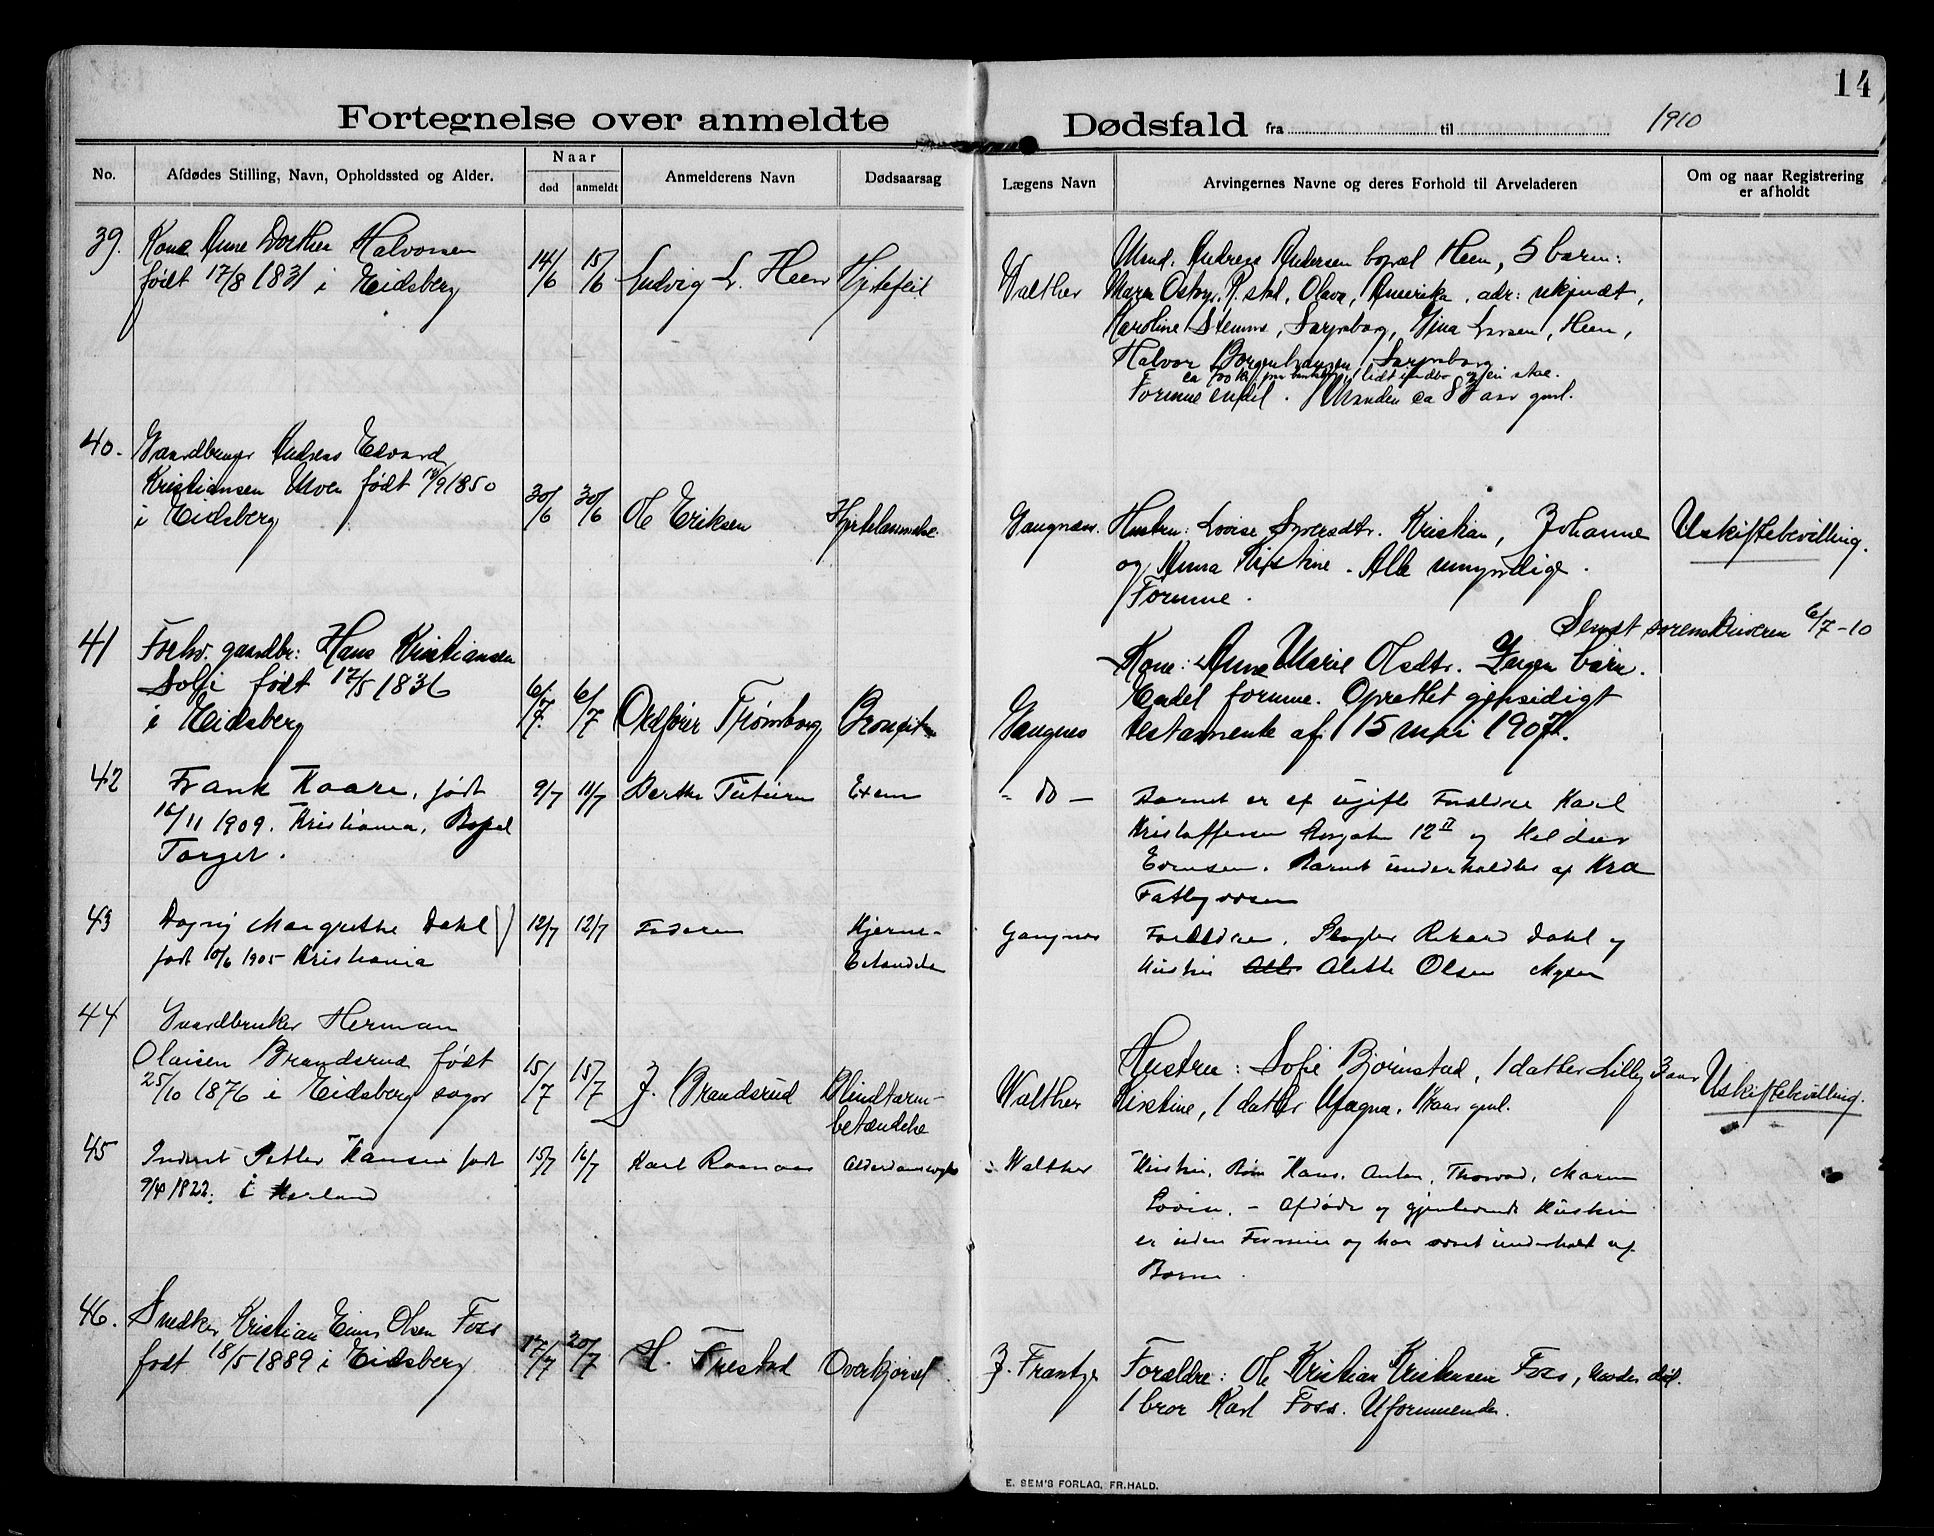 14
Fortegnelse over anmeldte Dødsfald fra til 1910
No.
Afdødes Stilling, Navn, Opholdssted og Alder.
Naar
død
anmeldt
Anmelderens Navn
Dødsaarsag
Lægens Navn
Arvingernes Navne og deres Forhold til Arveladeren
Om og naar Registrering
er afholdt
39.
Kone Anne Dorthea Halvorsen
født 17/8 1831 i Eidsberg
14/6
15/6
Ludvig L. Heen
Hjertefeil
Walther
Mand: Andreas Andersen bopæl Heen, 5 barn:
Maren Ostbye, R.stad, Olava, Amerika, adr: ukjendt,
Karoline Stemme, Sarpsborg, Gina Larsen, Heen,
Halvor Borgenhaugen, Sarpsborg
ca 700 kr. lidt indbo
Formue endel. Manden ca 83 aar gml.
40.
Gaardbruger Andreas Edvard
Kristiansen Moen født /9 1850
i Eidsberg
30/6
30/6
Ole Eriksen
Hjertelammelse.
Gaugnæs.
Hustru: Lovise Syversdtr. Kristian, Johanne
og Anna Kristine. Alle umyndige.
Formue.
Uskiftebevilling.
Sendt sorenskriveren 6/7-10
41
Forhv. gaardbr: Hans Kristiansen
Solli født 17/5 1836
i Eidsberg
6/7.
6/7
Ordfører Trømborg
Bronkit
Gaugnes
Kone: Anne Marie Olsdtr. Ingen børn.
Endel formue. Oprettet gjensidigt
testamente af 15 mai 1907.
42
Frank Kaare, født
16/11 1909. Kristiania, Bopæl
Torger.
9/7
11/7
Berthe Tuteirn
Exem
" do —
Barnet er af ugifte Forældre Karl
Kristoffersen 12 II og Heldur
Evensen. Barnet underholdtes af Kra
Fattigvæsen
43
Dagny Margrethe Dahl
født 10/6 1905 Kristiania
12/7
12/7
Faderen
Hjerne-
Betændelse
Gangnæs
Forældre. Slagter Rikard Dahl og
Hustru Alette Olsen Mysen
44
Gaardbruker Herman
Olaisen Brandsrud født
25/10 1876 i Eidsberg sogn
15/7
15/7
J. Brandsrud
Blindtarm-
betændelse
Walther
Hustru: Sofie Bjørnstad, 1 datter Lilly 3 aar
Kirstine, 1 datter Magna, 1 aar gml.
Uskiftebevilling.
45
Inderst Petter Hansen født
9/4 1822. i Morland
15/7
16/7
Karl Rasmaas
Alderdomssvaghed
Walther
Hustru. Børn Hans. Anton, Thorvad, Maren
Lovise. - Afdøde og gjenlevende Hustru
er uden Formue og har været underholdt af
Børnene.
46.
Snedker Kristian Einar Olsen Foss
født 18/5 1889 i Eidsberg
17/7
20/7
H. Frestad
Overkjørsel.
J. Frantze
Foræ​ldre: Ole Kristian Kristensen Foss, Moder død.
1 bror Karl Foss. Uformuende.
E. SEM'S FORLAG, FR.HALD.